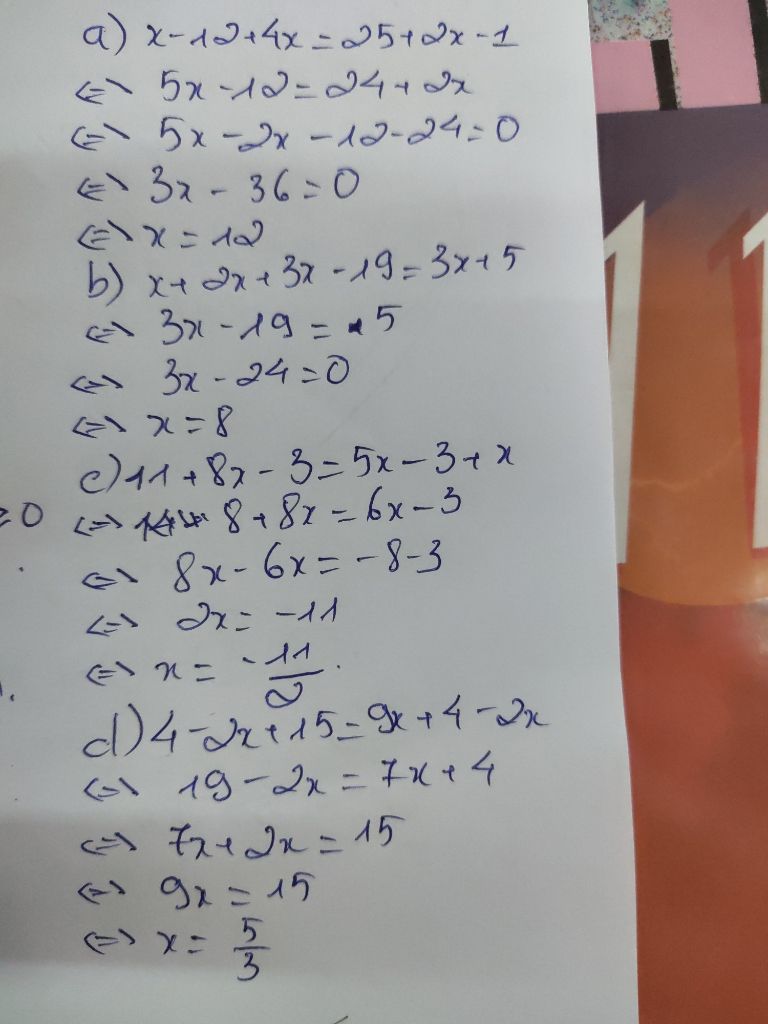 a) x-12+4x=25+2x-1
<=> 5x-12=24+2x
<=> 5x-2x-12-24=0
<=> 3x-36=0
<=> x=12
b) x+2x+3x-19=3x+5
<=> 3x-19=5
<=> 3x-24=0
<=> x=8
c) 11+8x-3=5x-3+x
=0 <=> 8+8x=6x-3
<=> 8x-6x=-8-3
<=> 2x=-11
<=> x=-11/2.
d) 4-2x+15=9x+4-2x
<=> 19-2x=7x+4
<=> 7x+2x=15
<=> 9x=15
<=> x=5/3
11